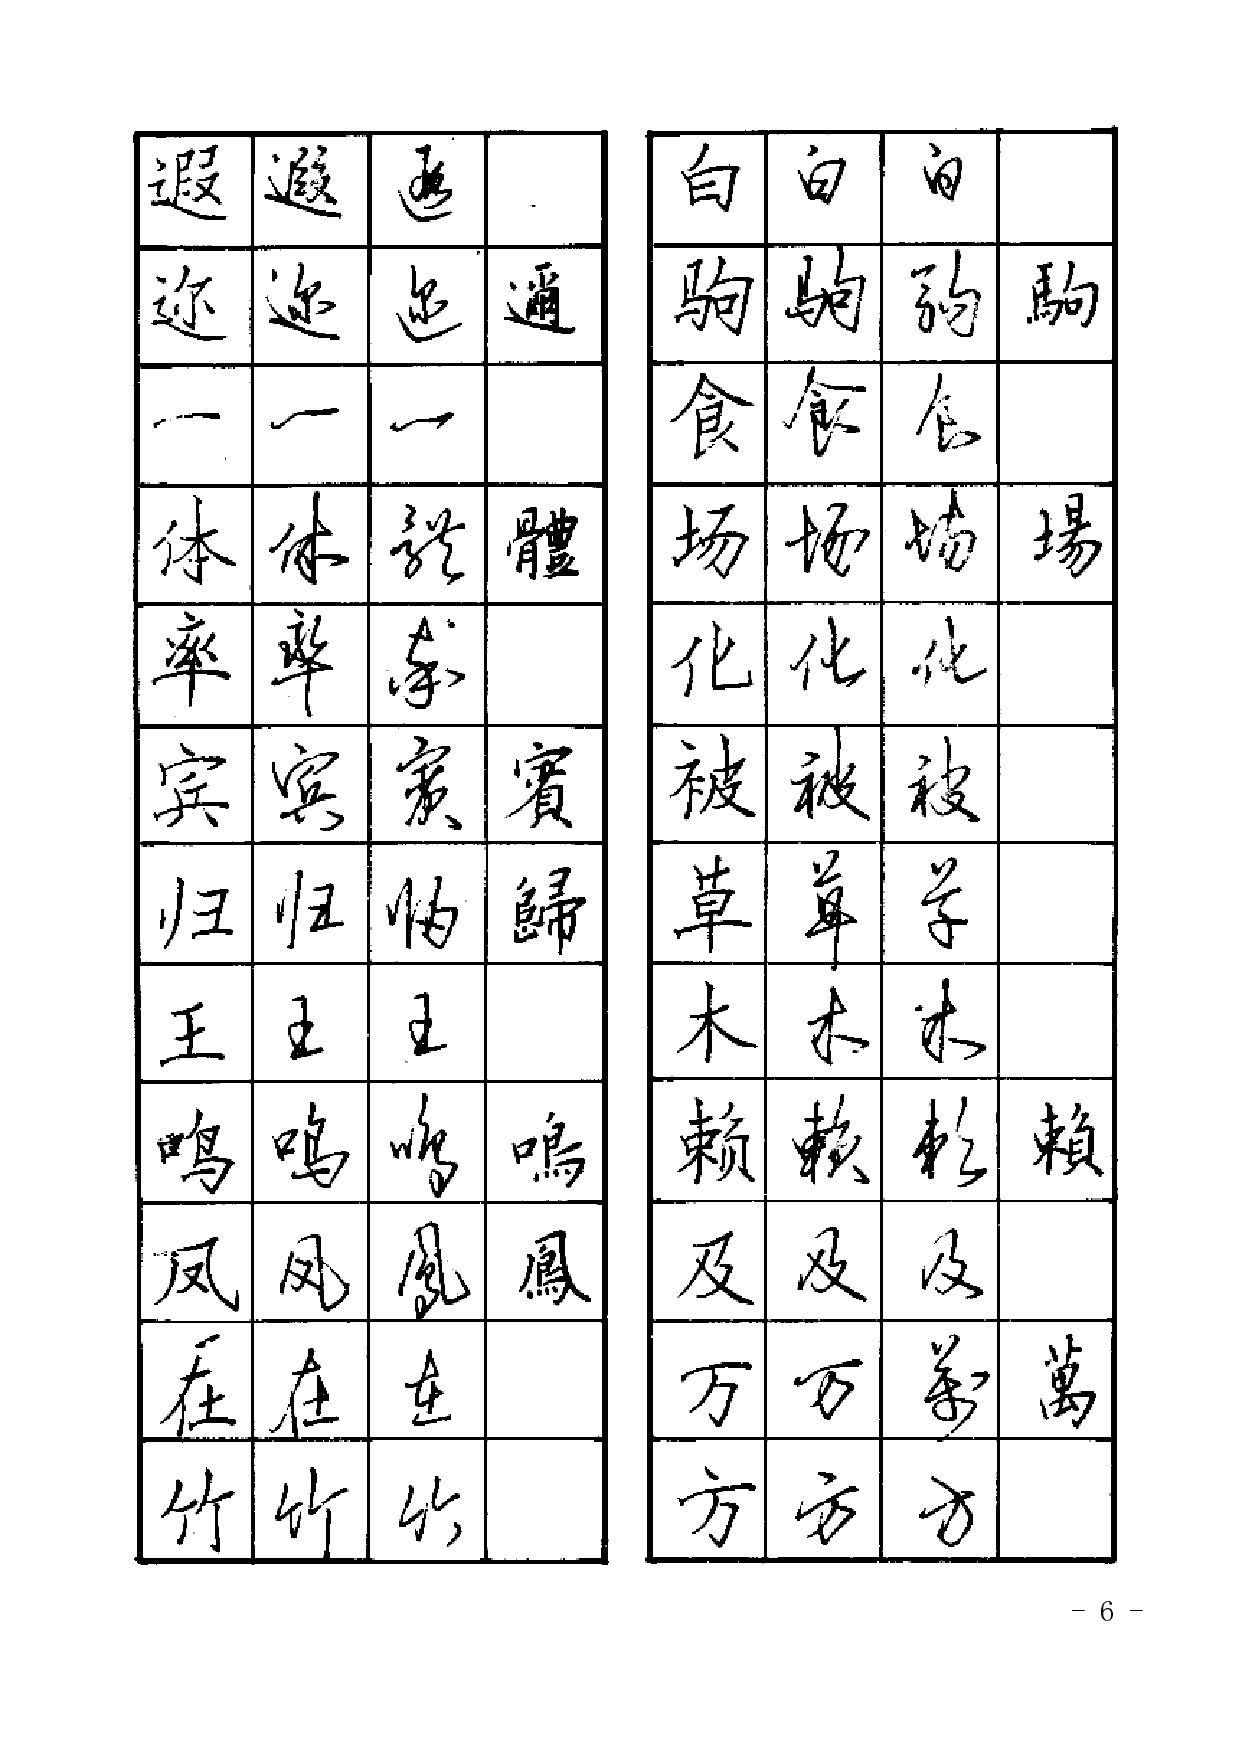 遐 遐 遐
迩 迩 迩 邇
一 一 一
体 体 体 體
率 率 率
宾 宾 賓 賓
归 归 归 歸
王 王 王
鸣 鸣 鸣 鳴
凤 凤 鳳 鳳
在 在 在
竹 竹 竹
白 白 白
驹 驹 驹 駒
食 食 食
场 场 场 場
化 化 化
被 被 被
草 草 草
木 木 木
赖 赖 赖 賴
及 及 及
万 万 萬 萬
方 方 方
- 6 -